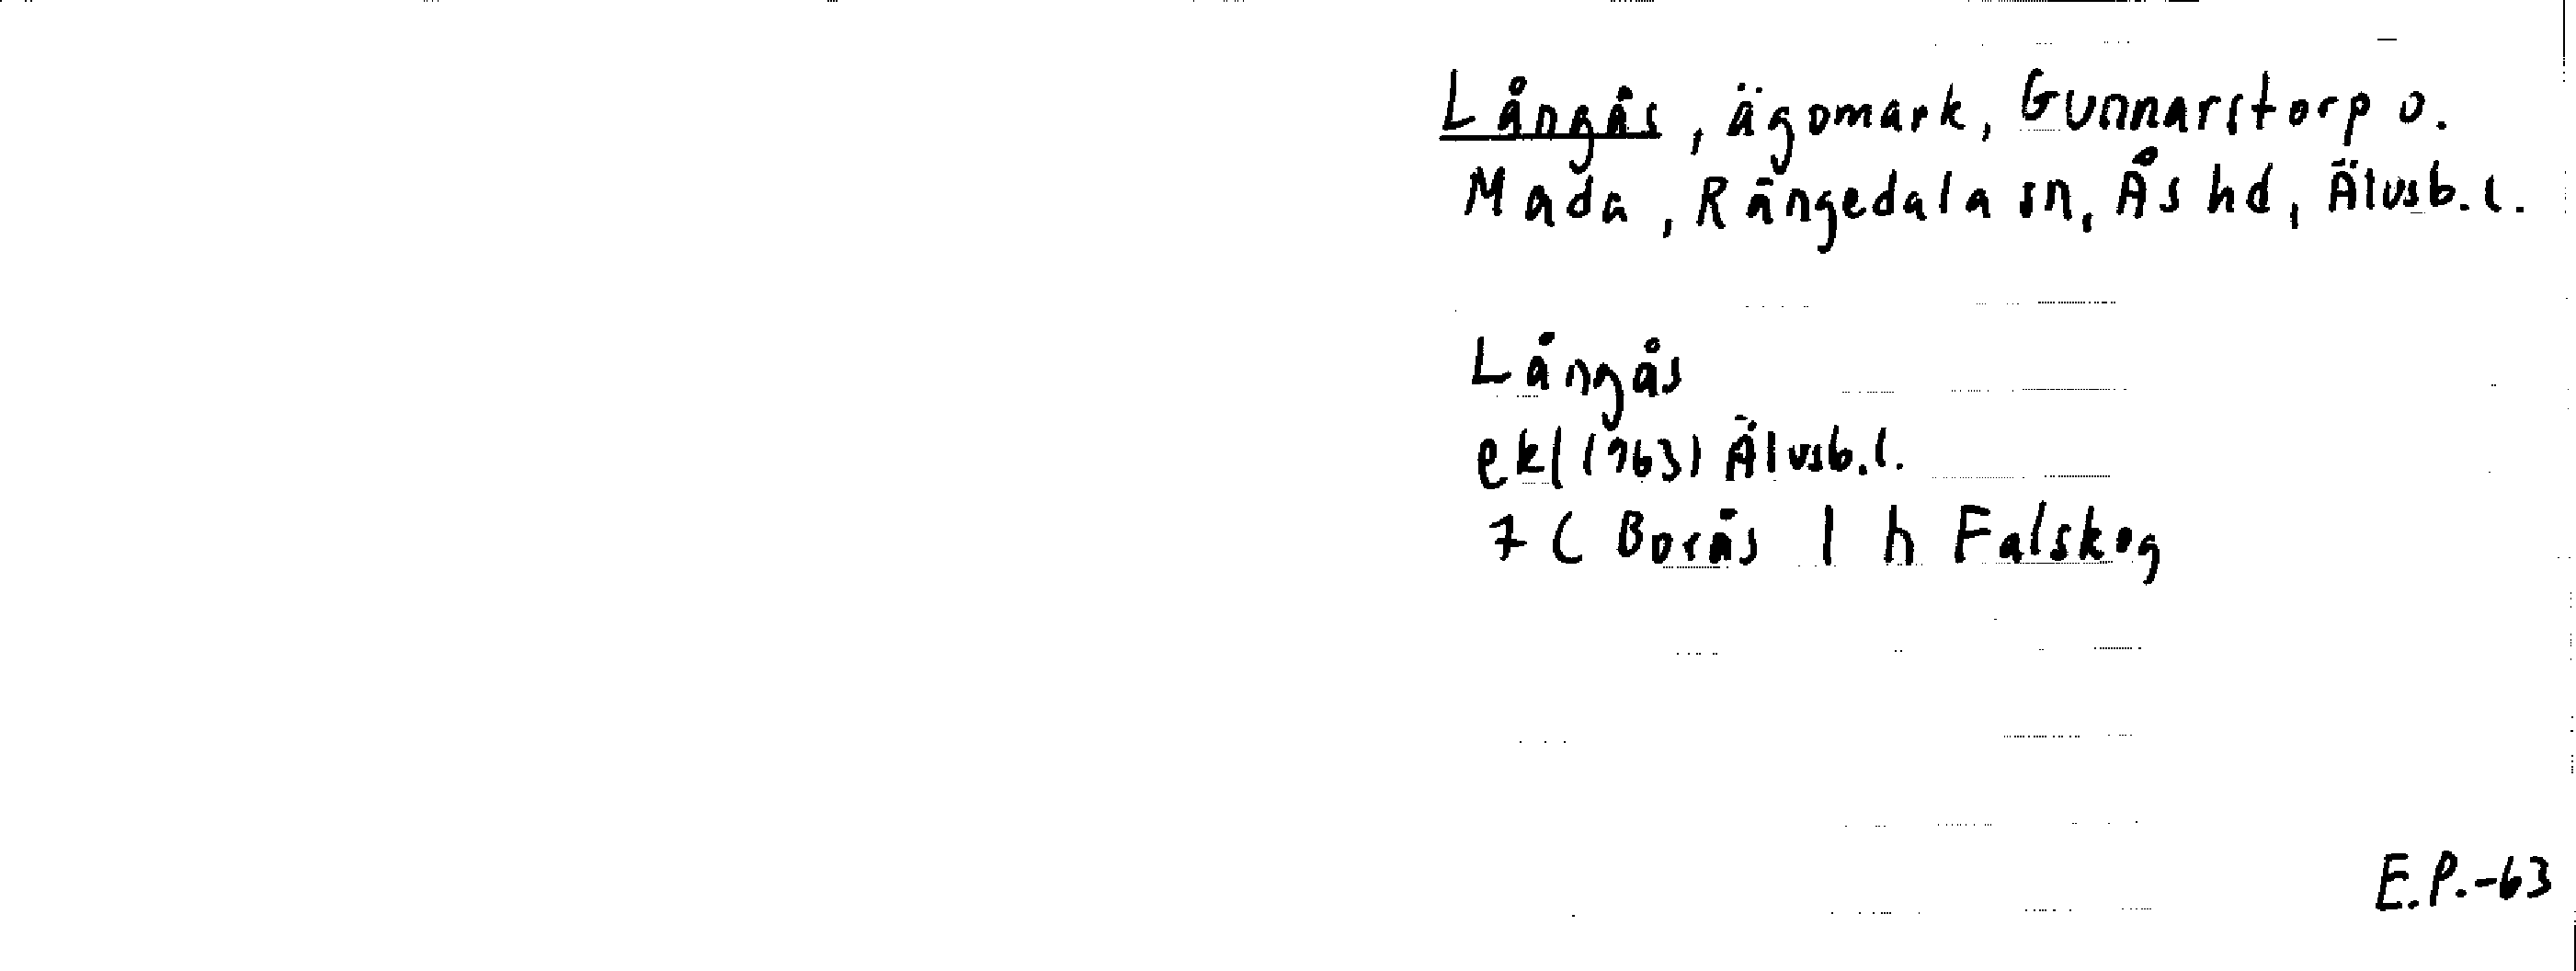 Långås, ägomark, Gunnarstorp o.
Mada, Rångedala sn, Ås hd, Älvsb.l.
Långås
ekl (1963) Älvsb.l.
7 C Borås 1 h Falskog
E.P.-63